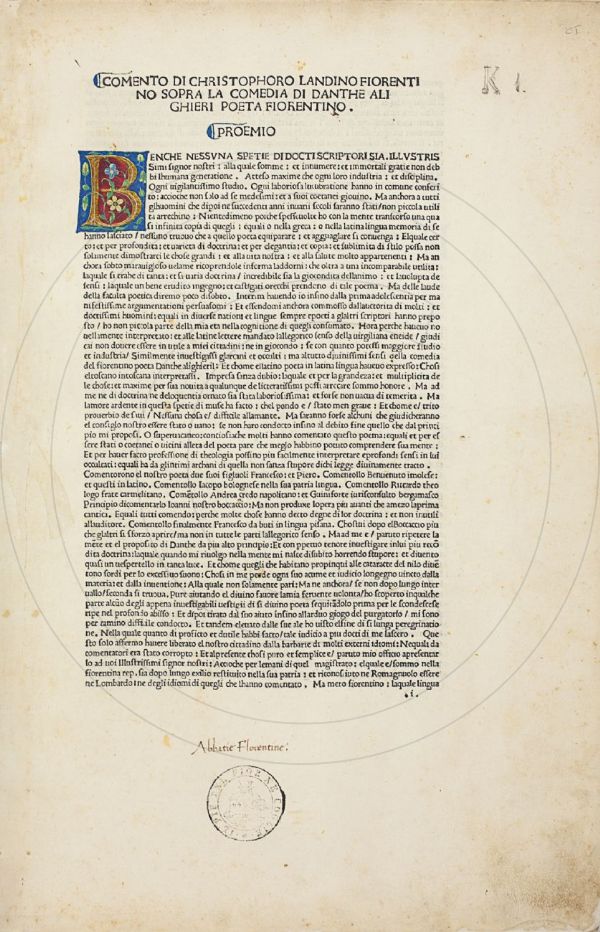 COMENTO DI CHRISTOPHORO LANDINO FIORENTI
NO SOPRA LA COMEDIA DI DANTHE ALI
GHIERI POETA FIORENTINO.
PROEMIO
K 1.
BENCHE NESSVNA SPETIE DI DOCTI SCRIPTORI SIA. ILLVSTRIS
Simi signor nostri: alla quale somme: et innumere: et immortali gratie non deb
bi lhumana generatione. Atteso maxime che ogni loro industria: et disciplina.
Ogni uigilantissimo studio. Ogni laboriosa lucubratione hanno in comune conferi
to: accioche non solo ad se medesimi: et a suoi coetanei giouino. Ma anchora a tutti
glhuomini che dipoi ne succedenti anni inuani secoli saranno stati/non piccola utili
ta arrechino: Nientedimeno perche spessuolte ho con la mente transcorso una qua
si infinita copia di quegli: equali o nella greca: o nella latina lingua memoria di se
hanno lasciato/nessuno truouo che a quello poeta equiparare: et agguagliare si conuenga:
to: et per profondita: et uarieta di doctrina: et per elegantia: et copia: et sublimita di stilo possa non
solamente dimostrarci le chose grandi: et alla uita nostra: et alla salute molto appartenenti: Ma an
chora sobto marauiglioso uelame ricoprendole inferma laddormi: che oltra a una incomparabile utilita:
laquale si trahe di tanta: et si uaria doctrina/incredibile sia la giocondita dellanimo: et la uolupta de
sensi: laquale un bene erudito ingegno: et castigati orecchi prendono di tale poema. Ma delle laude
della faculta poetica diremo poco disobto. Interim hauendo io insino dalla prima adolescentia per ma
nifestissime argumentationi persuasomi: Et essendomi anchora commosso dallauctorita di molti: et
doctissimi huomini: equali in diuerse nationi et lingue sempre epoeti a glaltri scriptori hanno prepo
sto/ho non piccola parte della mia eta nella cognitione di quegli consumato. Hora perche haueuo no
uellamente interpretato: et alle latine lettere mandato lallegorico senso della uirgiliana eneide/giudi
cai non douere essere in utile a miei cittadini: ne in giocondo: se con quanto potessi maggiore studio
et industria/Similmente inuestigassi glarcani et occulti: ma altutto diuinissimi sensi della comedia
del fiorentino poeta Danthe alighieri: Et chome elatino poeta in latina lingua haueuo expresso: Chosi
eltoscano intoscana interpretassi. Impresa senza dubio: laquale et per la grandeza: et multiplicita de
le chose: et maxime per sua nouita a qualunque de litteratissimi possi arrecare sommo honore. Ma ad
me ne di doctrina ne deloquentia ornato sia stata laboriosissima: et forse non uacua di temerita. Ma
lamore ardente in questa spetie di muse ha facto: chel pondo e/stato men graue: Et chome e/trito
prouerbio de sui/Nessuna chosa e/difficile allamante. Ma saranno forse alchuni che giudicheranno
el consiglio nostro essere stato o uano: se non haro condocto insino al debito fine quello che dal princi
pio mi proposi. O superuacaneo: conciosiache molti hanno comentato questo poema: equali et per es
sere stati o coetanei o uicini alleta del poeta pare che meglio habbino potuto comprendere sua mente:
Et per hauer facto professione di theologia possino piu facilmente interpretare eprofondi sensi in lui
occultati: equali ha da glintimi archani di quella non sanza stupore dichi legge diuinamente tracto.
Comentorono el nostro poeta due suoi figluoli Francesco: et Piero. Comentollo Benuenuto imolese:
et questi in latino. Comentollo Iacopo bolognese nella sua patria lingua. Comentollo Riccardo theo
logo frate carmelitano. Comentollo Andrea credo napolitano: et Guiniforte iurisconsulto bergamasco
Principio dicomentarlo Ioanni nostro boccaccio: Ma non produxe lopera piu auanti che amezo laprima
cantica. Equali tutti comendo: perche molte chose hanno decto degne di lor doctrina: et non inutili
allauditore. Comentollo finalmente Francesco da buti in lingua pisana. Chostui dopo elBoccaccio piu
che glaltri si sforzo aprire/ma non in tutte le parti lallegorico senso. Ma ad me e/paruto ripetere la
mente et el proposito di Danthe da piu alto principio: Et con pptuo tenore inuestigare inlui piu reco
dita doctrina: laquale quando mi riuolgo nella mente mi nasce disubito horrendo stupore: et diuento
quasi un uespertello in tanca luce. Et chome quegli che habitano propinqui alle cataracte del nilo diuē
tono sordi per lo excessiuo suono: Chosi in me perde ogni suo acume et iudicio longegno uincto dalla
materia: et dalla inuentione: Alla quale non solamente pari: Ma ne anchora/se non dopo lungo inter
uallo/seconda si truoua. Pure aiutando el diuino fauore lamia feruente uolonta/ho scoperto inqualche
parte alcuo degli appena inuestigabili uestigii di si diuino poeta sequitādolo prima per le scondescese
ripe nel profondo abisso: Et dipoi tirato dal suo aiuto insino alaltissimo giogo del purgatorio/mi sono
per camino difficile condocto. Et tandem eleuato dalle sue ale ho uisto elfine di si lunga peregrinatio
ne. Nella quale quanto di proficto et dutile habbi facto/tale iudicio a piu docti di me lascero. Que
sto solo affermo hauere liberato el nostro cittadino dalla barbarie di molti externi idiomi: Nequali da
comentatori era stato corropto: Et alpresente chosi puro et semplice e/paruto mio officio apresentar
lo ad uoi Illustrissimi signor nostri: Accioche per lemani di quel magistrato: elquale e/sommo nella
fiorentina rep. sia dopo lungo exilio restituito nella sua patria: et riconosciuto ne Romagnuolo essere
ne Lombardo: ne degli idiomi di quegli che lhanno comentato. Ma mero fiorentino: laquale lingua
.i.
Abbatie Florentine: